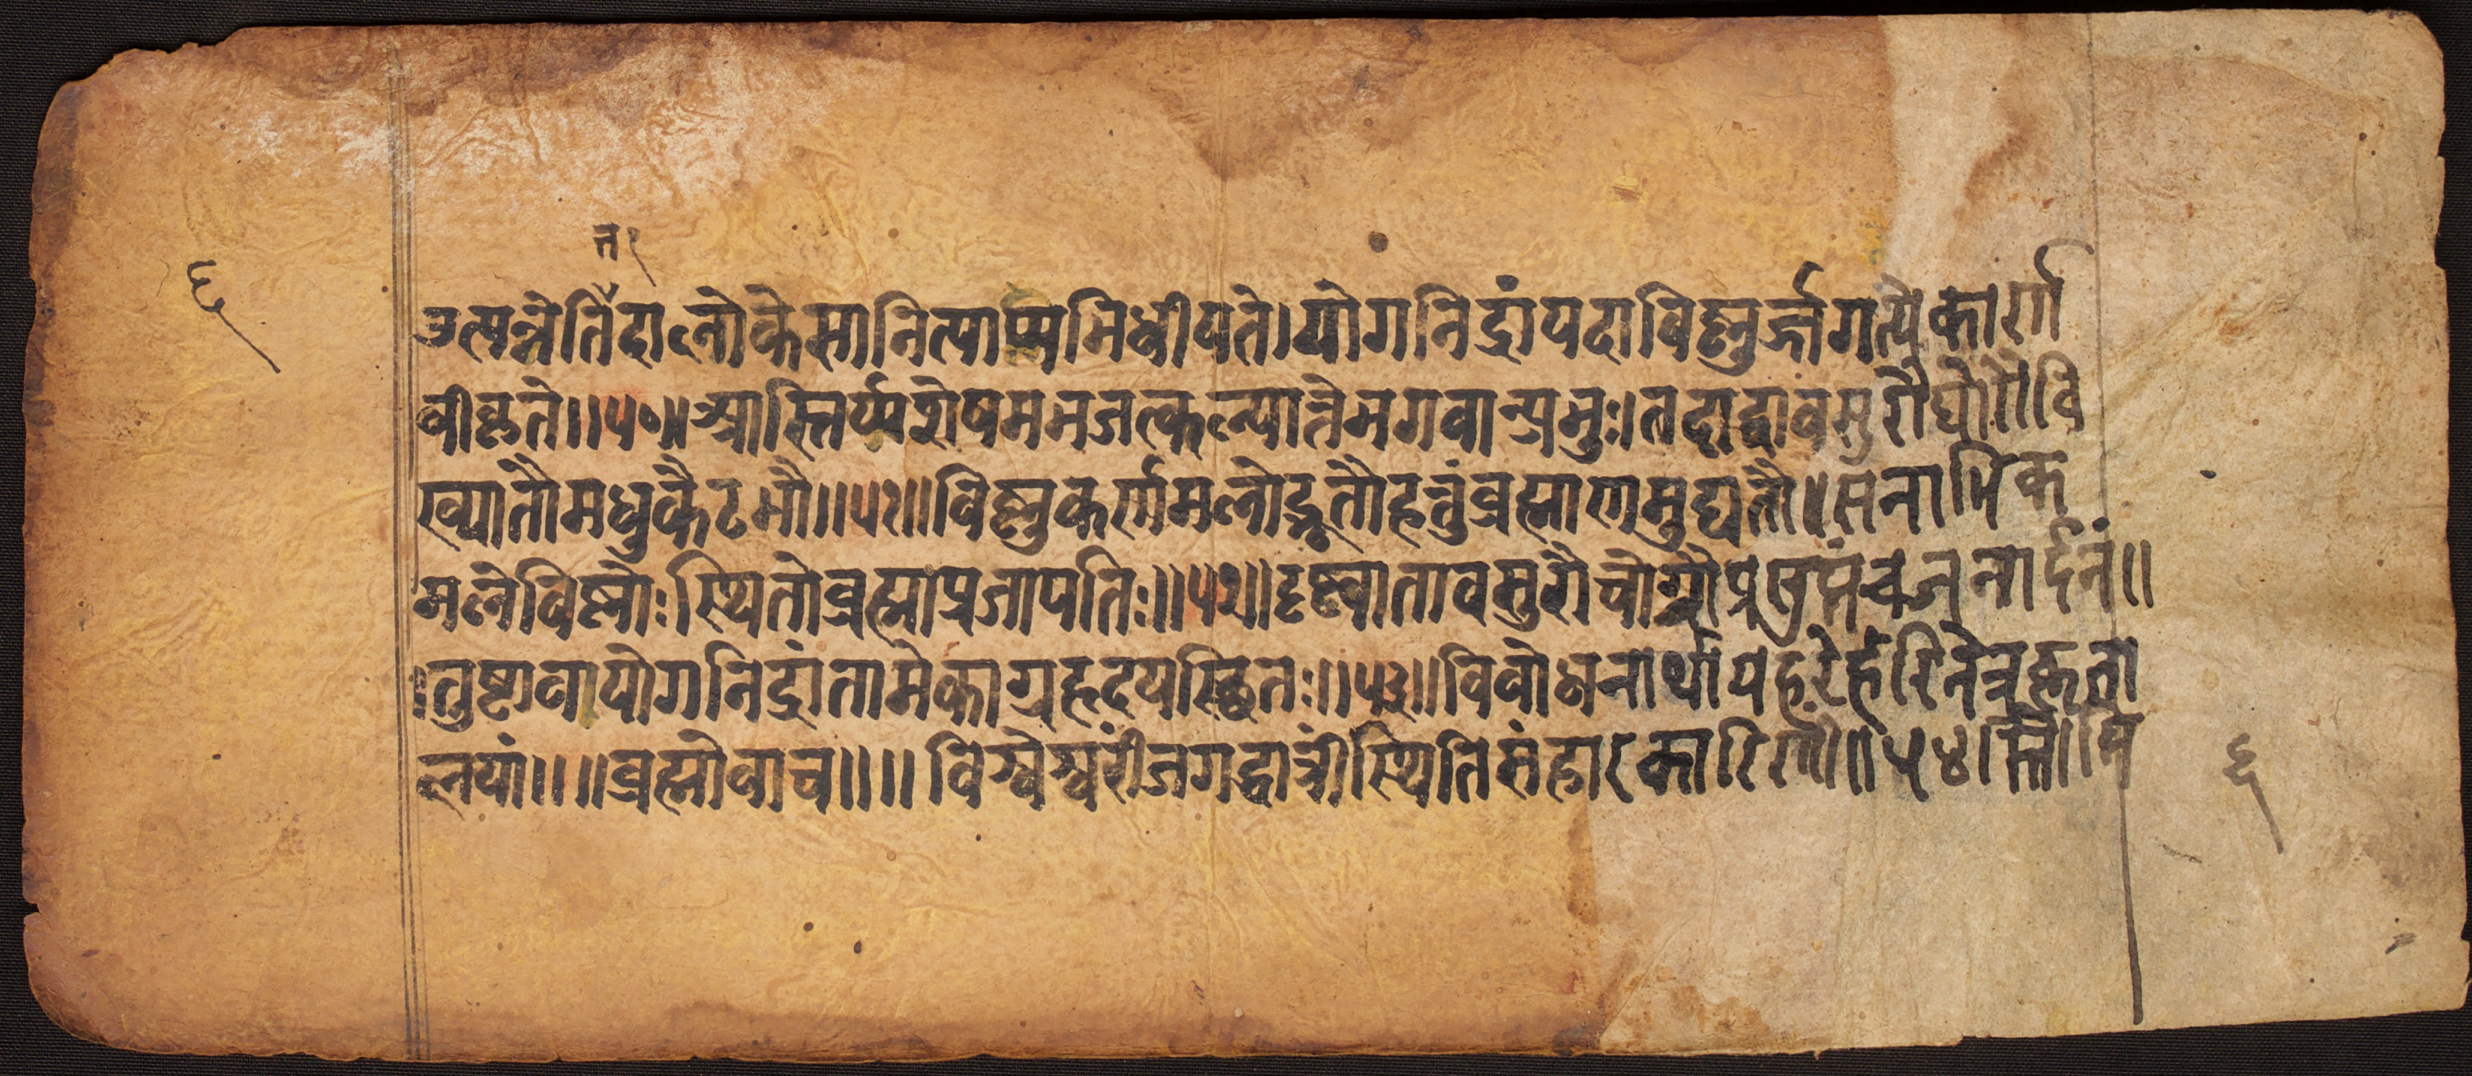 त१
६
उत्पन्नेतिदालोकेसानित्याप्यभिधीयते।योगनिद्रांयदाविष्णुर्ज्जगत्येकार्ण
वीकृते॥५०॥आस्तिर्य्यशेषमभजत्कल्पान्तेभगवान्प्रभुः।तदाद्वावसुरौघोरौवि
ख्यातौमधुकैटभौ॥५१॥विष्णुकर्णमलोद्भूतौहन्तुंब्रह्माणमुद्यतौ॥सनाभिक
मलेविष्णोःस्थितोब्रह्माप्रजापतिः॥५२॥दृष्ट्वातावसुरौचोग्रौप्रसुप्तंचजनार्दनं॥
।तुष्टावायोगनिद्रांतामेकाग्रहृदयस्थितः॥५३॥विवोधनार्थायहरेर्हरिनेत्रकृता
लयां॥॥ब्रह्मोवाच॥॥विश्वेश्वरींजगद्धात्रींस्थितिसंहारकारिणीं॥५४॥स्तौमि
६